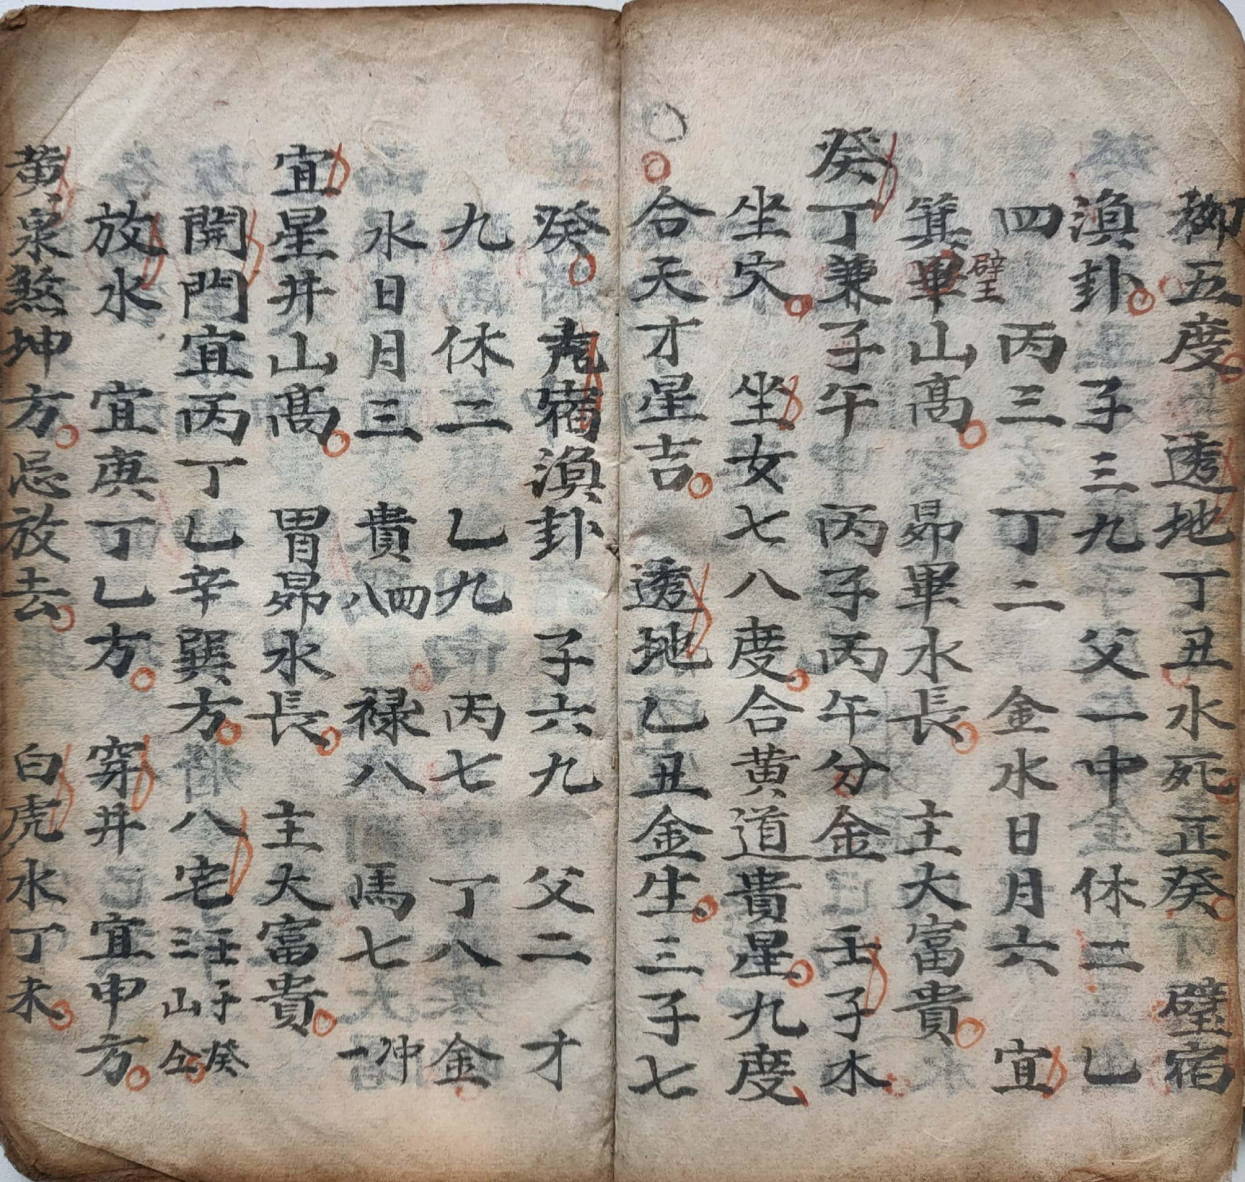 柳五度 透地丁丑水死正癸 壁宿
㴊卦 子三九 父一中 休二 乙
四 丙三 丁二 金水日月六 宜
箕畢山高 昴畢水長 主大富貴
壁王
癸丁兼子午 丙子丙午分金 壬子木
坐穴 坐女七八度合黄道貴星九度
合天才星吉 透地乙丑金生三子七
癸 宿㴊卦 子六九 父二 才
九 休二 乙九 丙七 丁八 金
水日月三 貴四八 禄八 馬七 冲一
宜星井山髙 胃昴水長 主大富貴
開門宜丙丁乙辛巽方 八宅 子癸 三山
放水 宜庚丁乙方 穿井 宜申方
黄泉煞坤方忌放去 白虎水丁未